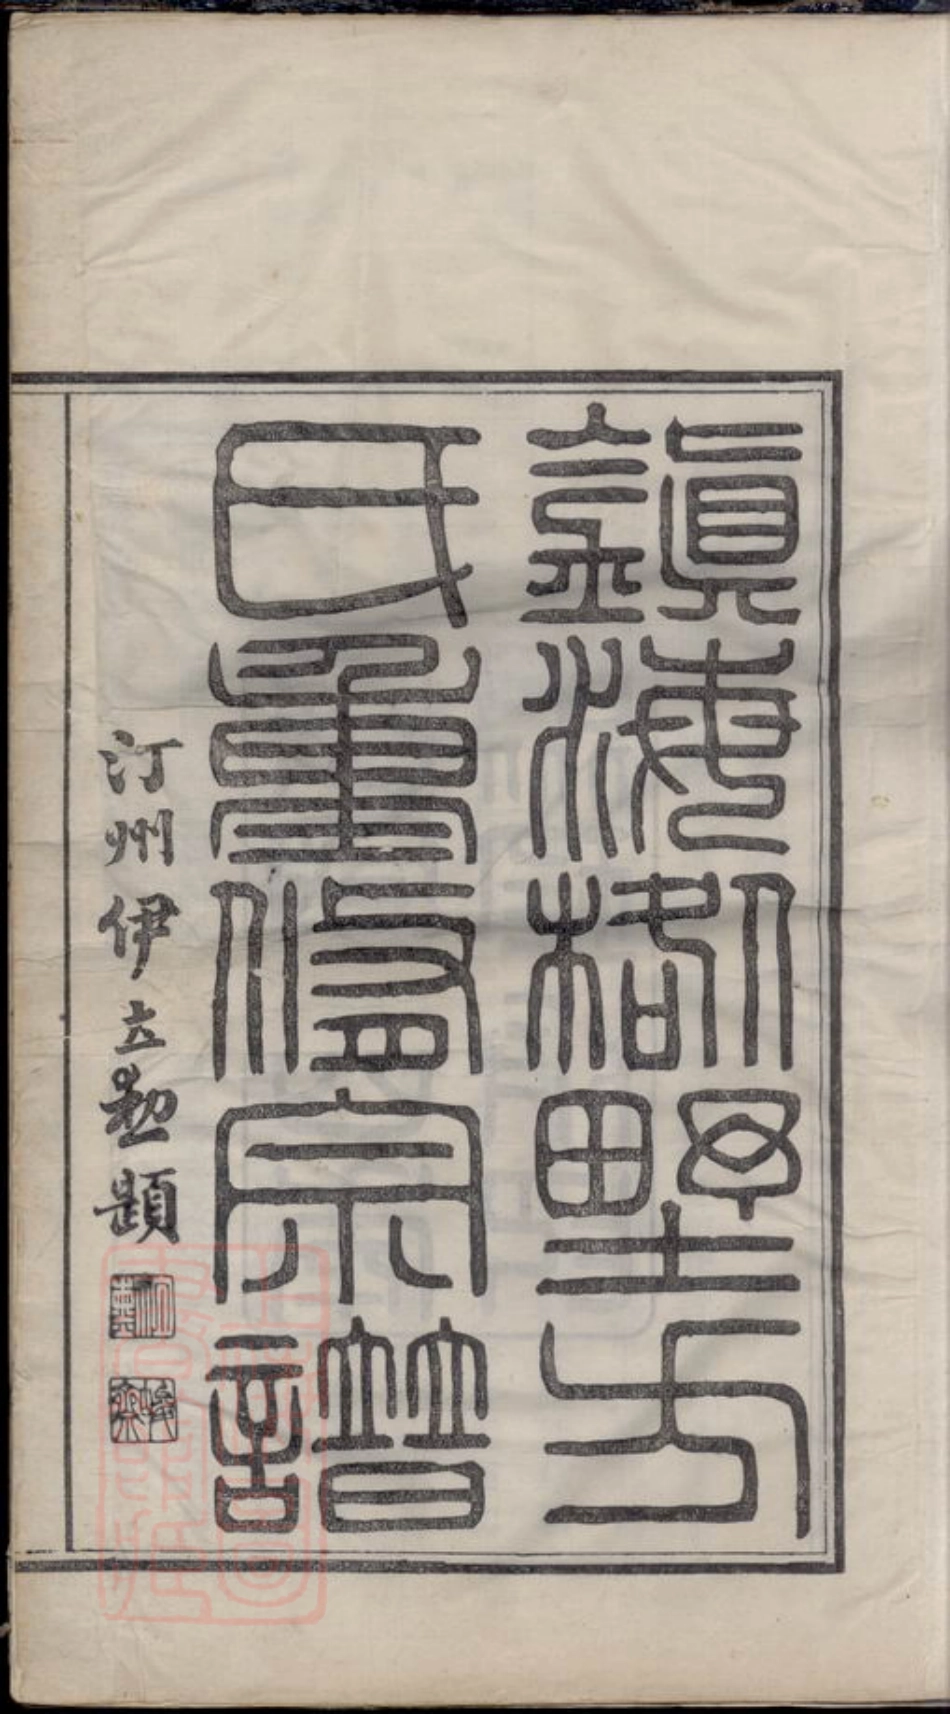 鎮海墅方
氏重修宗譜
汀州伊立勳題
峻齋